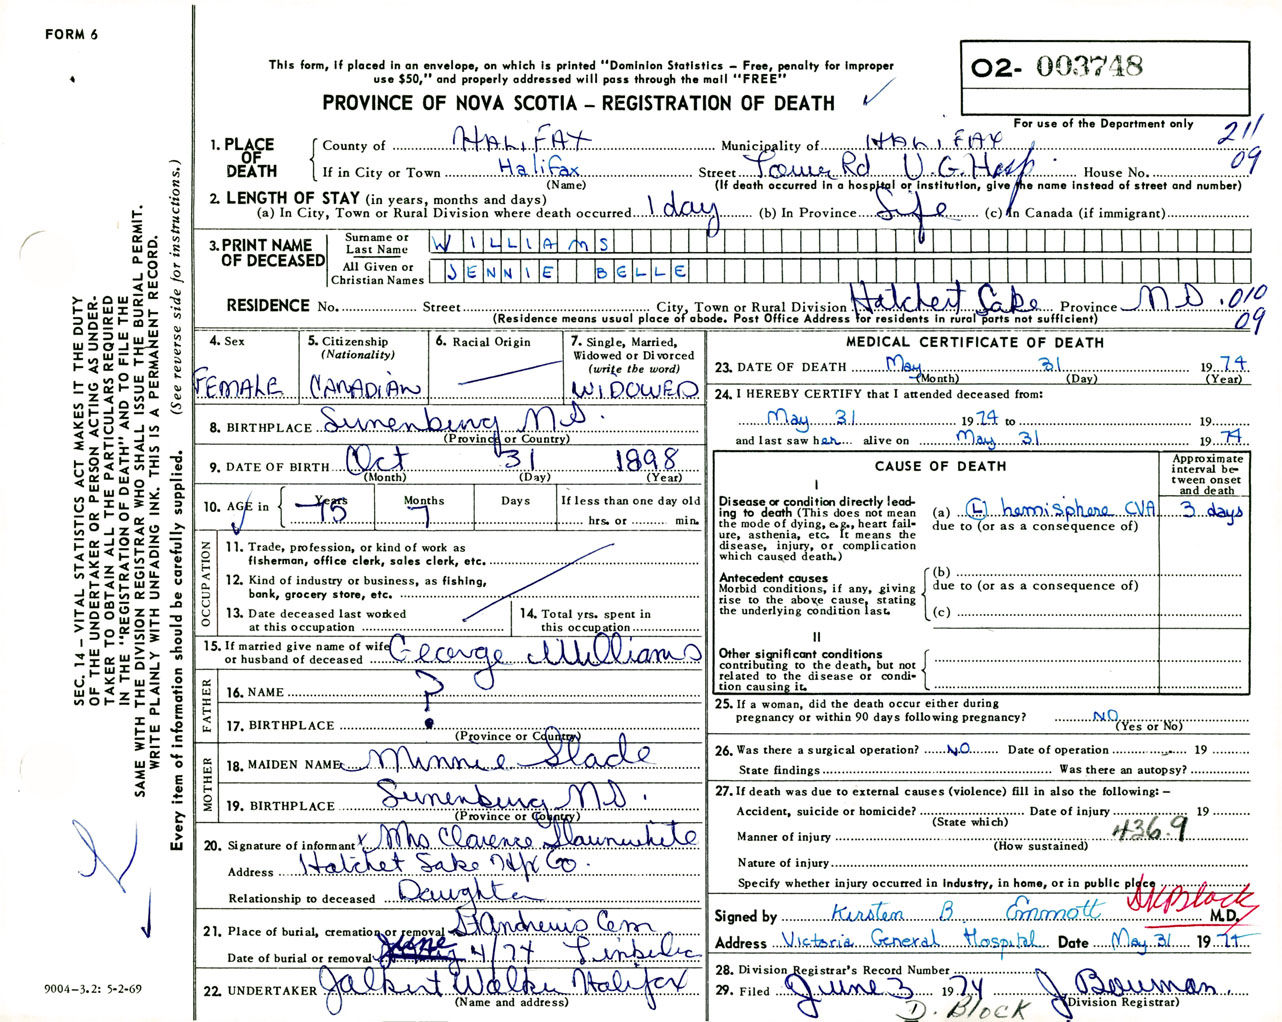 FORM 6
This form, if placed in an envelope, on which is printed "Dominion Statistics – Free, penalty for improper
use $50," and properly addressed will pass through the mail "FREE"
PROVINCE OF NOVA SCOTIA – REGISTRATION OF DEATH
02- 003748
For use of the Department only
211
09
1. PLACE OF DEATH
County of HALIFAX Municipality of HALIFAX
If in City or Town Halifax Street Tower Rd V.G. Hosp House No.
(Name) (If death occurred in a hospital or institution, give the name instead of street and number)
2. LENGTH OF STAY (in years, months and days)
(a) In City, Town or Rural Division where death occurred 1 day (b) In Province Life (c) In Canada (if immigrant)
3. PRINT NAME OF DECEASED
Surname or Last Name WILLIAMS
All Given or Christian Names JENNIE BELLE
RESIDENCE No. Street City, Town or Rural Division Hatchert Lake Province N.S. 010
09
(Residence means usual place of abode. Post Office Address for residents in rural parts not sufficient)
4. Sex FEMALE
5. Citizenship (Nationality) CANADIAN
6. Racial Origin
7. Single, Married, Widowed or Divorced (write the word) WIDOWED
8. BIRTHPLACE Lunenburg N.S.
(Province or Country)
9. DATE OF BIRTH Oct 31 1898
(Month) (Day) (Year)
10. AGE in Years 75 Months 7 Days If less than one day old
hrs. or min.
OCCUPATION
11. Trade, profession, or kind of work as
fisherman, office clerk, sales clerk, etc.
12. Kind of industry or business, as fishing,
bank, grocery store, etc.
13. Date deceased last worked
at this occupation
14. Total yrs. spent in
this occupation
15. If married give name of wife
or husband of deceased George Williams
FATHER
16. NAME ?
17. BIRTHPLACE
(Province or Country)
MOTHER
18. MAIDEN NAME Minnie Slade
19. BIRTHPLACE Lunenburg N.S.
(Province or Country)
20. Signature of informant x Mrs Clarence Slaunwhite
Address Hatchet Lake Hfx Co.
Relationship to deceased Daughter
21. Place of burial, cremation or removal St Andrews Cem
Date of burial or removal June 4/74
22. UNDERTAKER Halifax
(Name and address)
MEDICAL CERTIFICATE OF DEATH
23. DATE OF DEATH May 31 1974
(Month) (Day) (Year)
24. I HEREBY CERTIFY that I attended deceased from:
May 31 1974 to 19
and last saw her alive on May 31 1974
CAUSE OF DEATH
Approximate interval between onset and death
I
Disease or condition directly lead-
ing to death (This does not
mean the mode of dying, e.g., heart fail-
ure, asthenia, etc. It means the
disease, injury, or complication
which caused death.)
(a) (L) hemisphere CVA 3 days
due to (or as a consequence of)
Antecedent causes
Morbid conditions, if any, giving
rise to the above cause, stating
the underlying condition last.
(b)
due to (or as a consequence of)
(c)
II
Other significant conditions
contributing to the death, but not
related to the disease or condi-
tion causing it.
25. If a woman, did the death occur either during
pregnancy or within 90 days following pregnancy? NO
(Yes or No)
26. Was there a surgical operation? NO Date of operation 19
State findings Was there an autopsy?
27. If death was due to external causes (violence) fill in also the following: –
Accident, suicide or homicide? Date of injury 19
(State which)
Manner of injury 436.9
(How sustained)
Nature of injury
Specify whether injury occurred in industry, in home, or in public place
Signed by Kirsten B Emmott DKBlock M.D.
Address Victoria General Hospital Date May 31 1974
28. Division Registrar's Record Number
29. Filed June 3 1974 J Bowman
(Division Registrar)
D. BLOCK
SEC. 14 – VITAL STATISTICS ACT MAKES IT THE DUTY
OF THE UNDERTAKER OR PERSON ACTING AS UNDER-
TAKER TO OBTAIN ALL THE PARTICULARS REQUIRED
IN THE "REGISTRATION OF DEATH" AND TO FILE THE
SAME WITH THE DIVISION REGISTRAR WHO SHALL ISSUE THE BURIAL PERMIT.
WRITE PLAINLY WITH UNFADING INK. THIS IS A PERMANENT RECORD.
Every item of information should be carefully supplied. (See reverse side for instructions.)
9004-3.2: 5-2-69